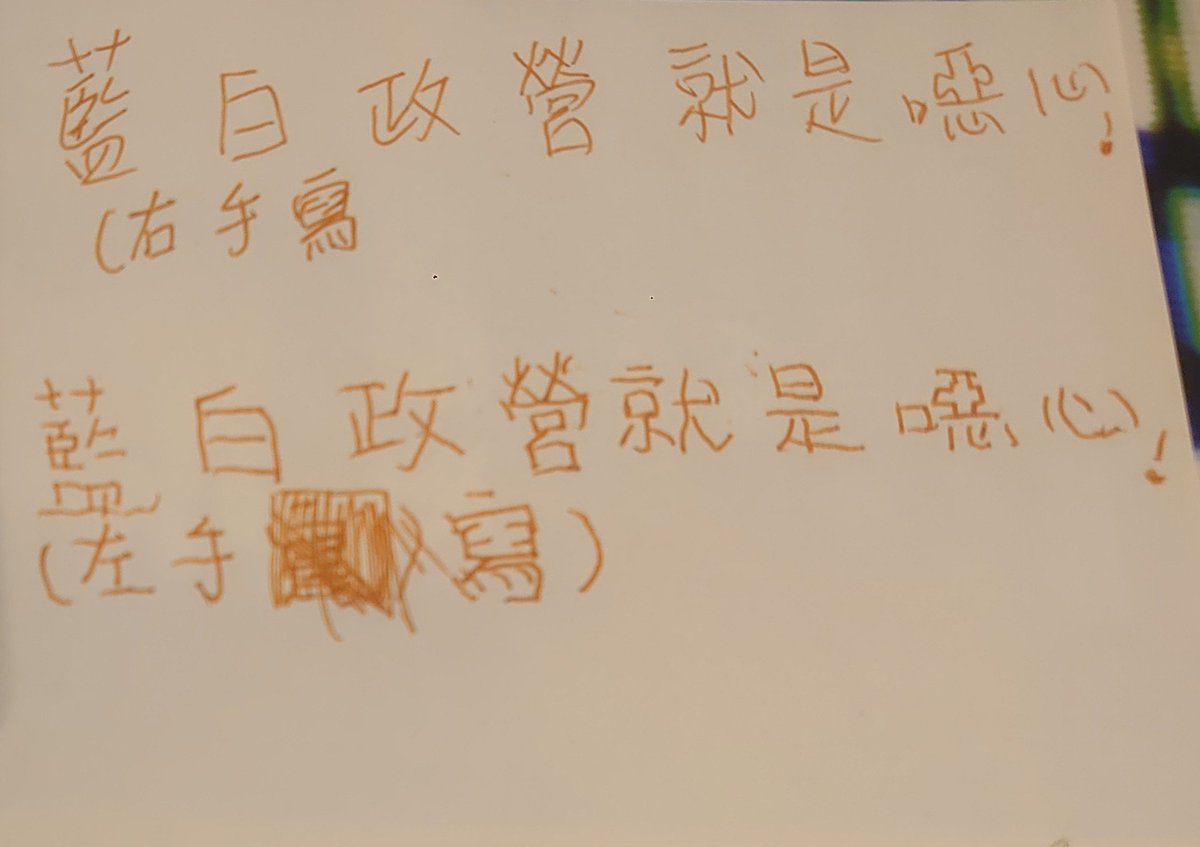 藍白政營就是噁心!
(右手寫
藍白政營就是噁心!
(左手寫)